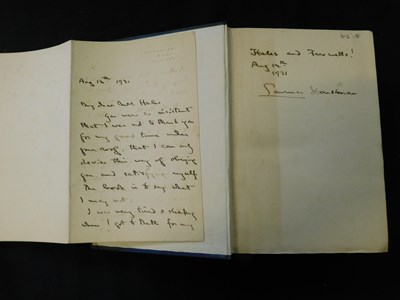 Aug 12th 1931
My dear Mrs Hales
You were so insistent
that I was not to thank you
for my good time under
your roof, that I can only
devise this way of obeying
you and satisfying myself
The book is to say what
I may not.
I was very tired & sleepy
when I got to Bath for my
Hales and Farewells!
Aug 12th
1931
Laurence Housman